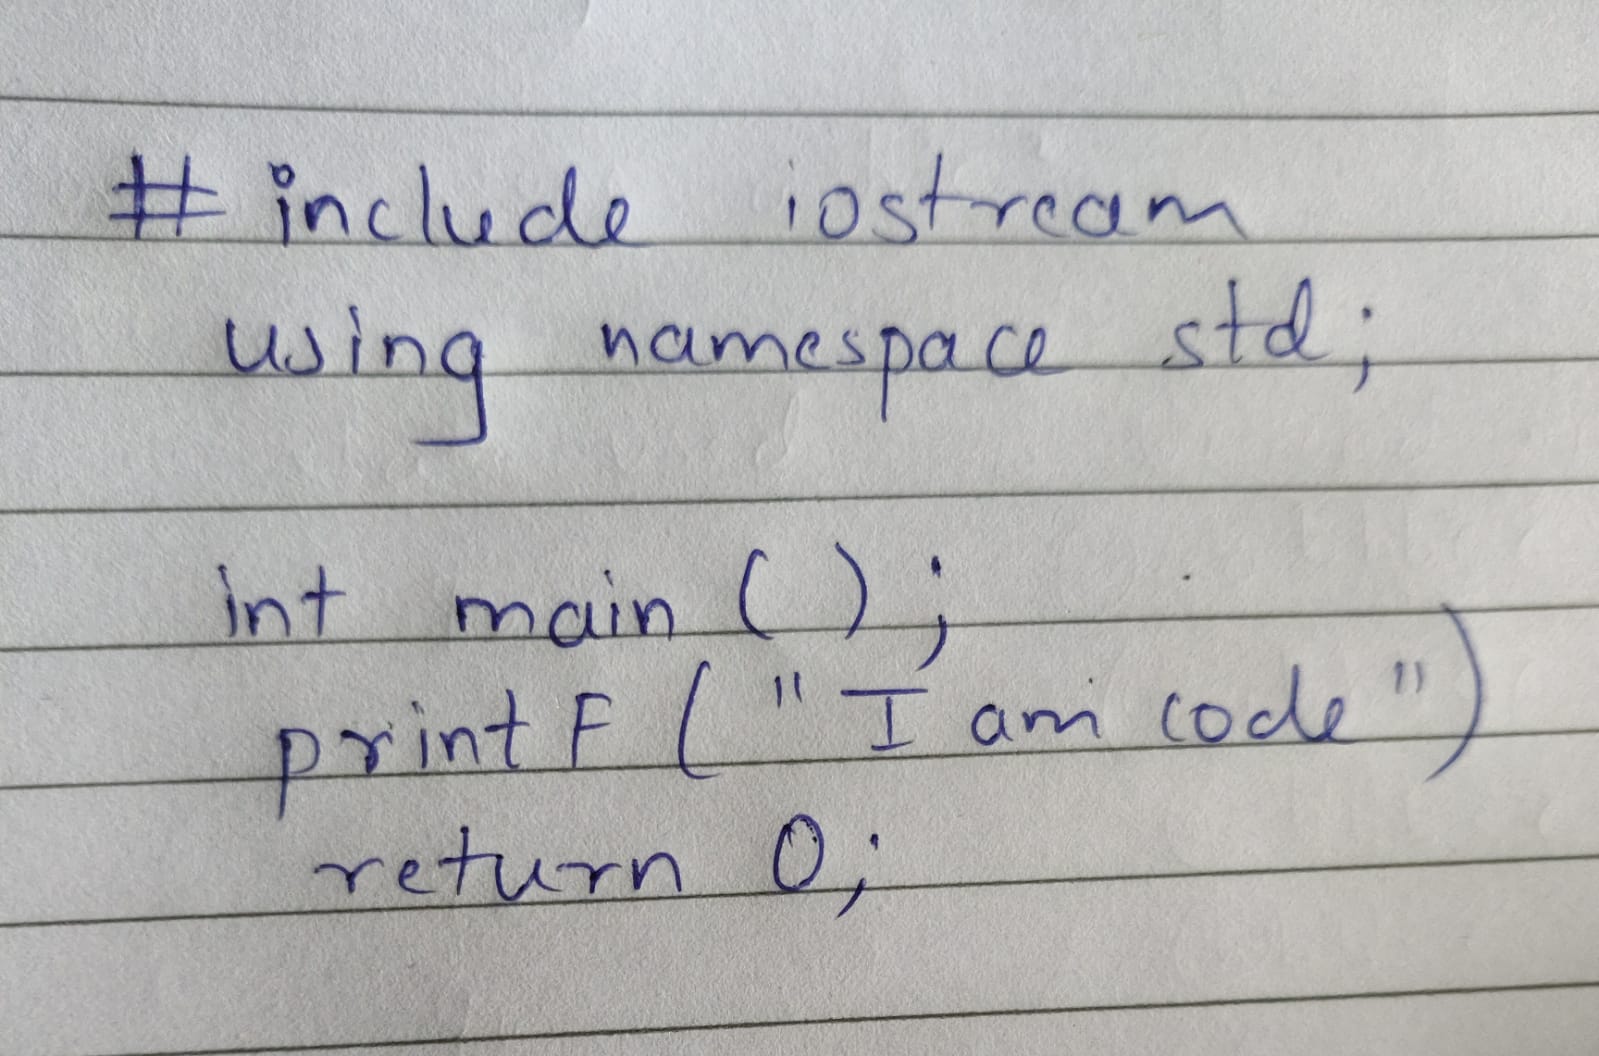 # include iostream
using namespace std;
int main ( ) ;
printF ( "I am code" )
return 0;